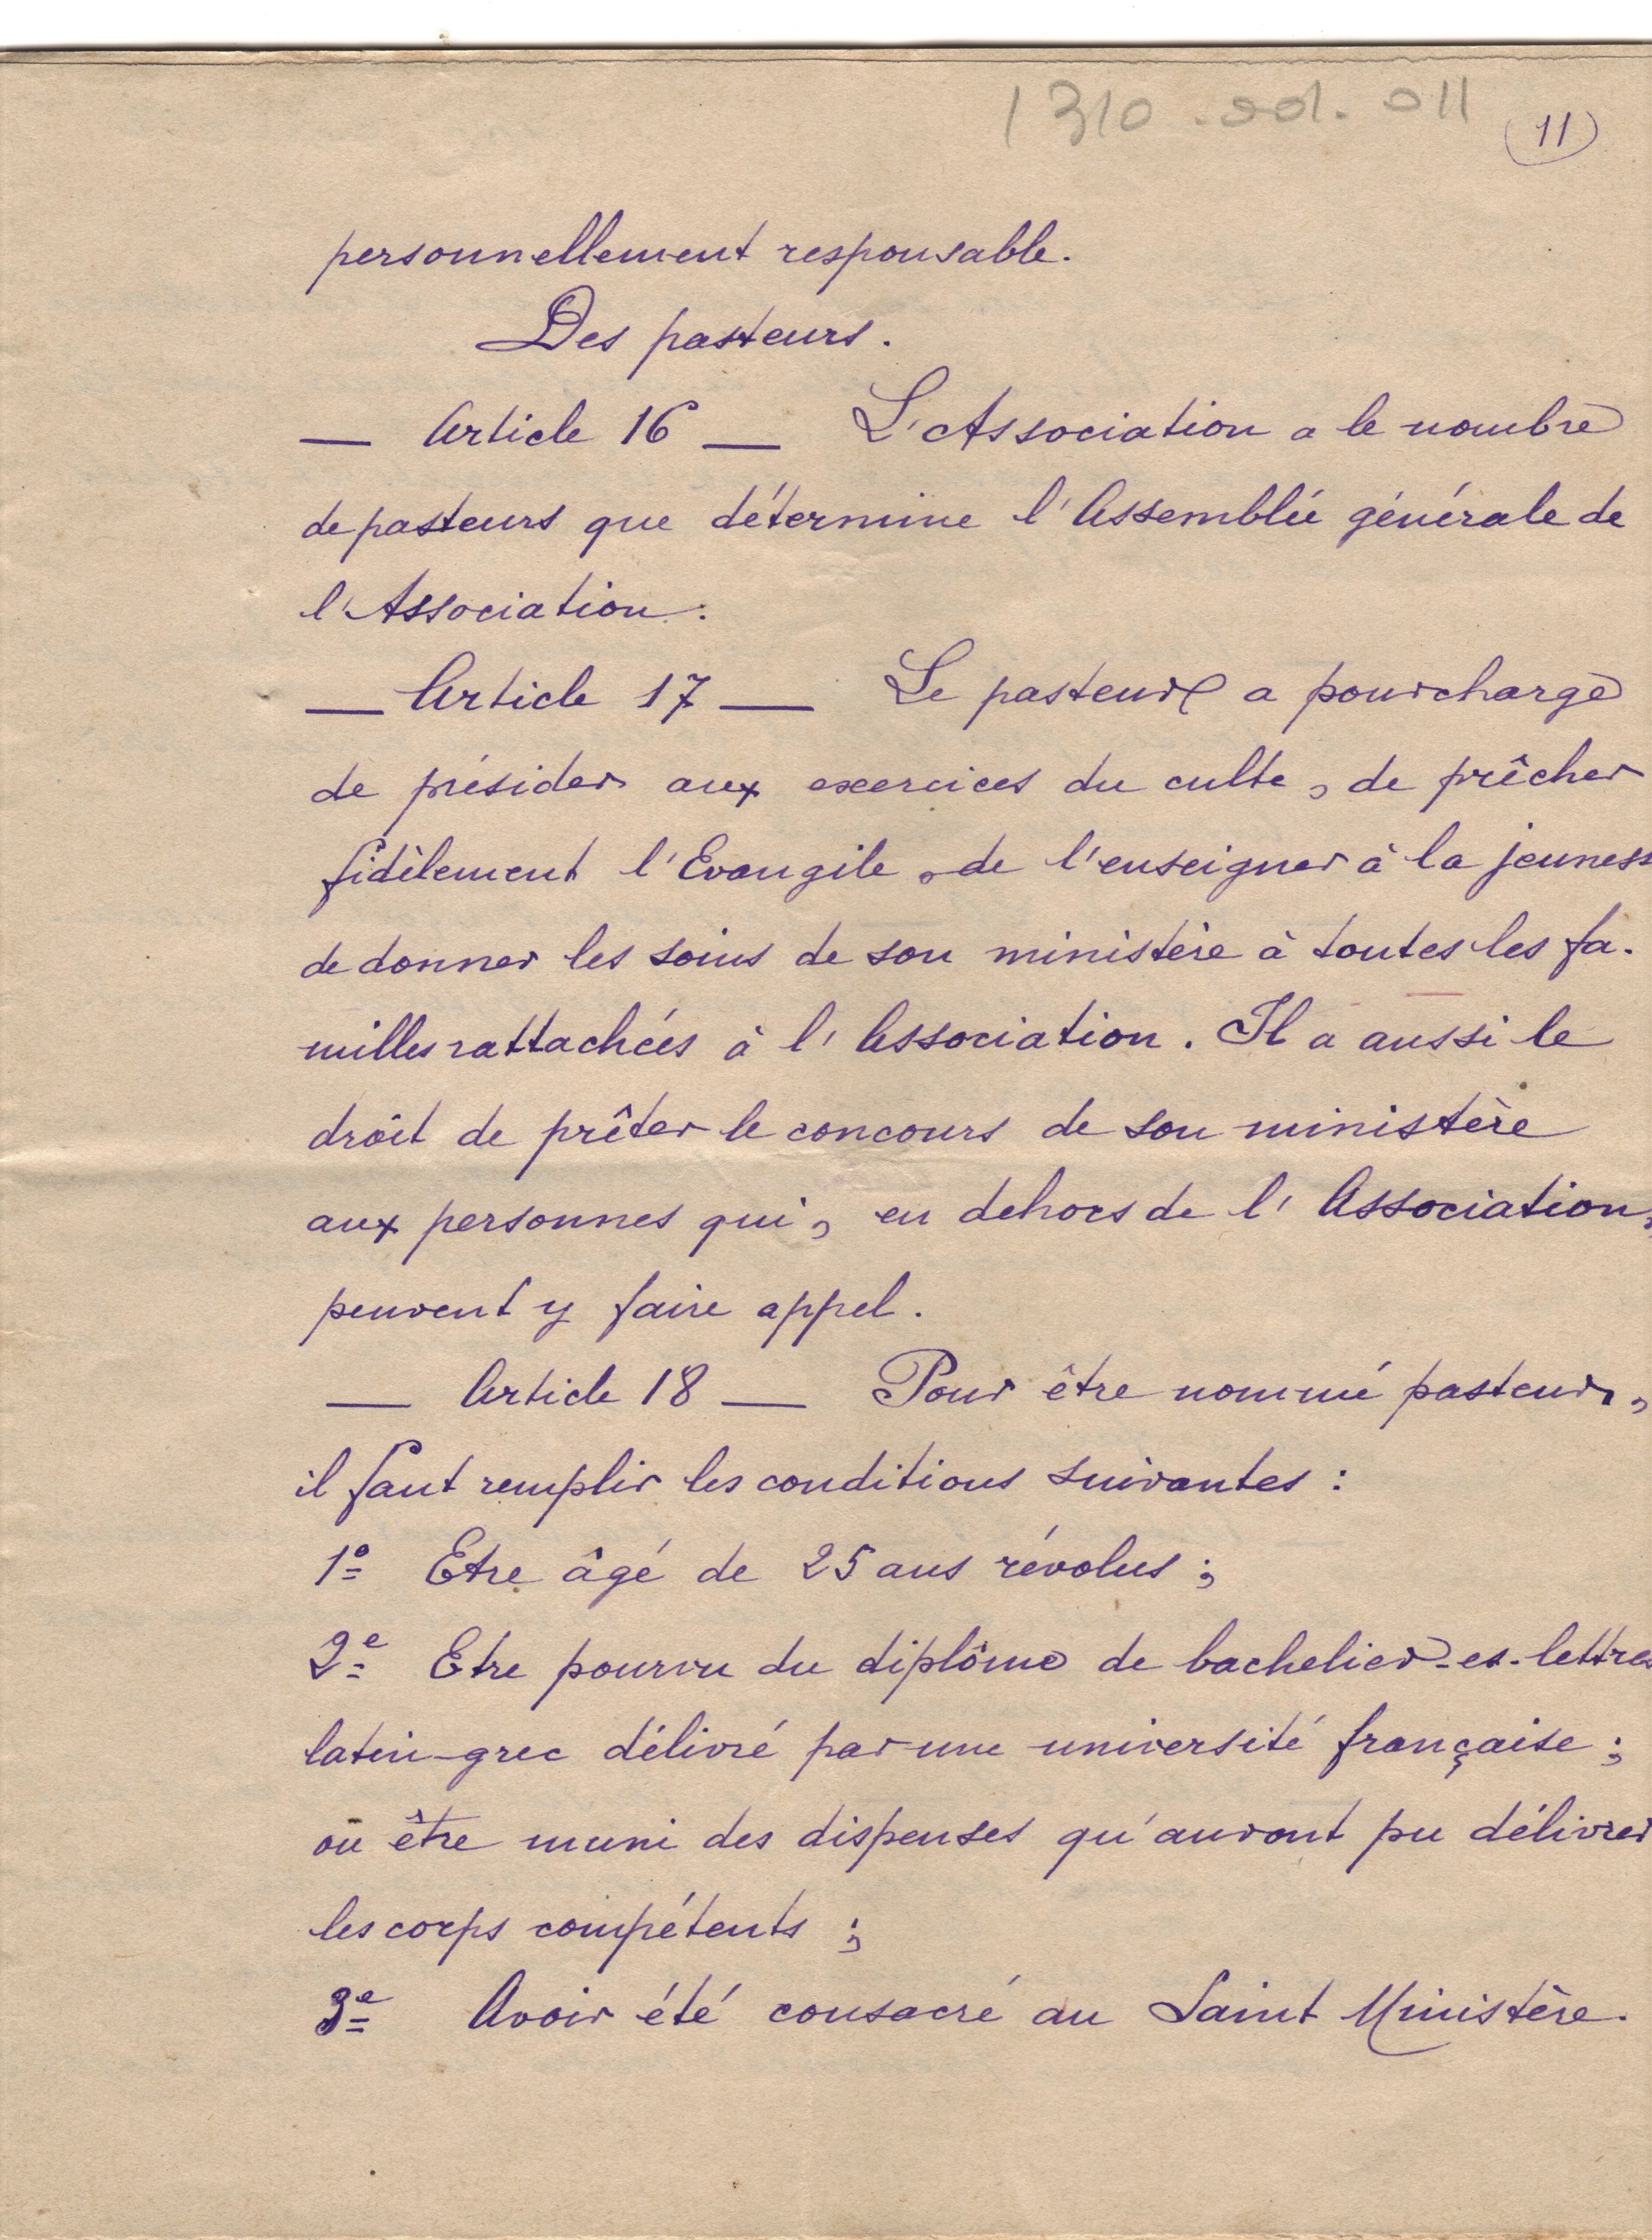 1310.001.011
11
personnellement responsable.
Des pasteurs.
— Article 16 — L'Association a le nombre
de pasteurs que détermine l'Assemblée générale de
l'Association.
— Article 17 — Le pasteur a pour charge
de présider aux exercices du culte, de prêcher
fidèlement l'Evangile, de l'enseigner à la jeuness
de donner les soins de son ministère à toutes les fa-
milles rattachées à l'Association. Il a aussi le
droit de prêter le concours de son ministère
aux personnes qui, en dehors de l'Association,
peuvent y faire appel.
— Article 18 — Pour être nommé pasteur,
il faut remplir les conditions suivantes :
1º Etre âgé de 25 ans révolus ;
2e Etre pourvu du diplôme de bachelier-es-lettres
latin-grec délivré par une université française ;
ou être muni des dispenses qu'auront pu délivrer
les corps compétents ;
3e Avoir été consacré au Saint Ministère.